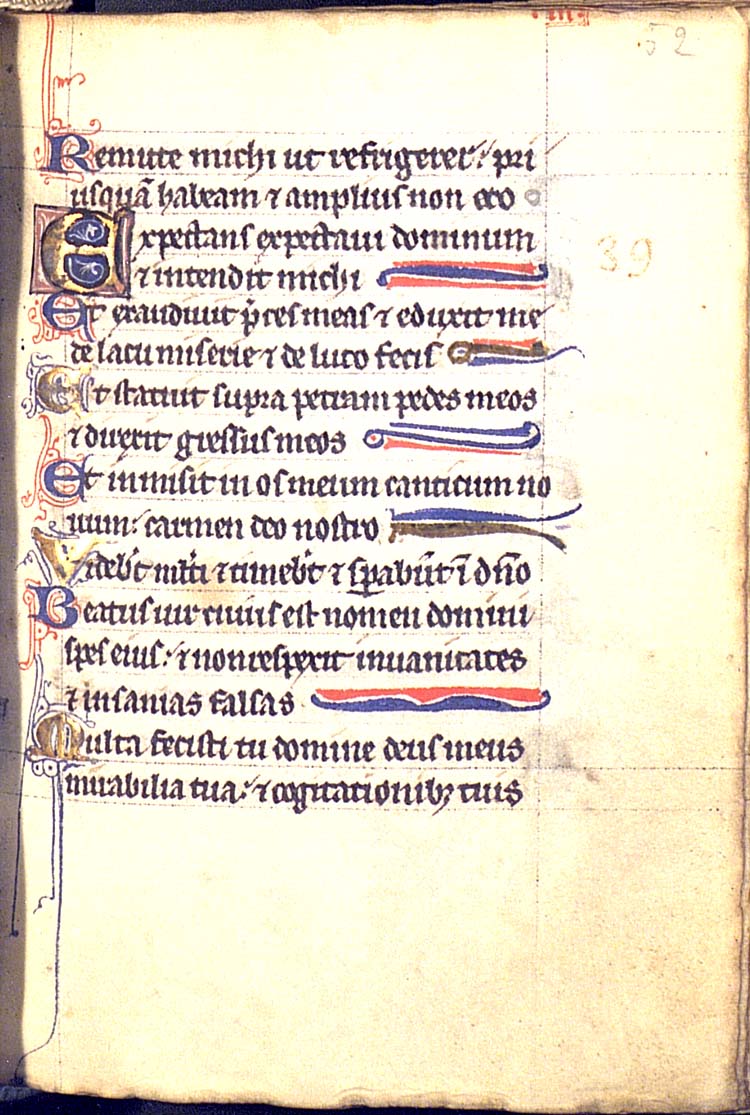 52
Remitte michi ut refrigerer: pri
usquā habeam ⁊ amplius non ero
39
Expectans expectaui dominum
⁊ intendit michi
Et exaudiuit p̄ces meas ⁊ eduxit me
de lacu miserie ⁊ de luto fecis
Et statuit supra petram pedes meos
⁊ direxit gressus meos
Et inmisit in os meum canticum no
uum: carmen deo nostro
Videbūt ml̄ti ⁊ timebūt ⁊ sꝑabūt ī dn̄o
Beatus uir cuius est nomen domini
spes eius: ⁊ non respexit in uanitates
⁊ insanias falsas
Multa fecisti tu domine deus meus
mirabilia tua: ⁊ cogitationibꝫ tuis